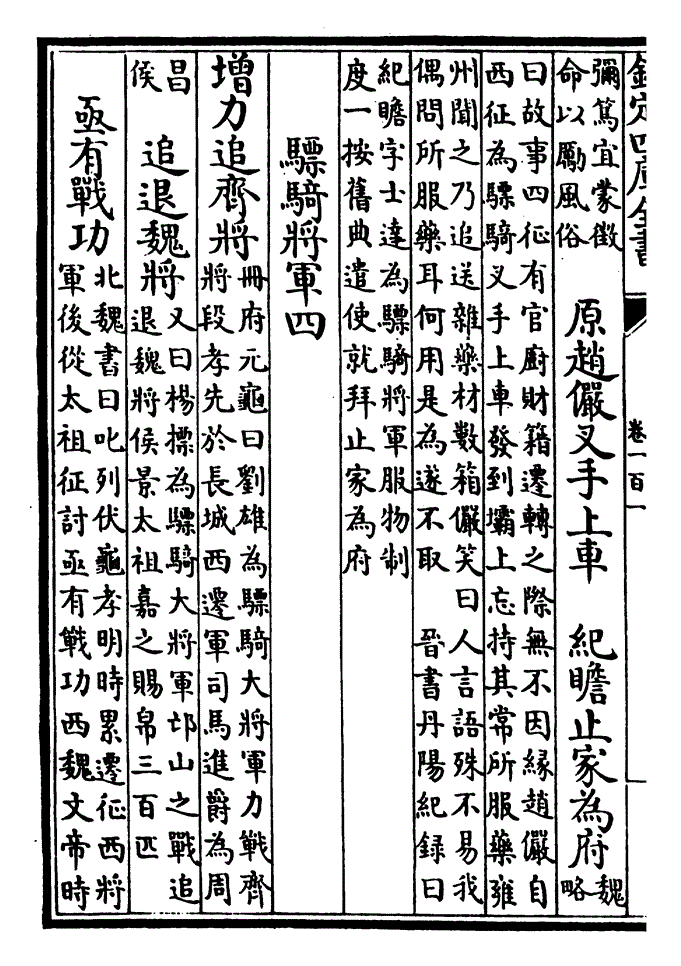 欽定四庫全書
卷一百一
彌篤宜蒙徵
命以勵風俗
原趙儼叉手上車　紀瞻止家為府
魏
略
曰故事四征有官廚財籍遷轉之際無不因緣趙儼自
西征為驃騎叉手上車發到壩上忘持其常所服藥雍
州聞之乃追送雜藥材數箱儼笑曰人言語殊不易我
偶問所服藥耳何用是為遂不取　晉書丹陽紀錄曰
紀瞻字士達為驃騎將軍服物制
度一按舊典遣使就拜止家為府
驃騎將軍四
增力追齊將
冊府元龜曰劉雄為驃騎大將軍力戰齊
將段孝先於長城西遷軍司馬進爵為周
昌
侯
追退魏將
又曰楊摽為驃騎大將軍邙山之戰追
退魏將侯景太祖嘉之賜帛三百匹
亟有戰功
北魏書曰叱列伏龜孝明時累遷征西將
軍後從太祖征討亟有戰功西魏文帝時